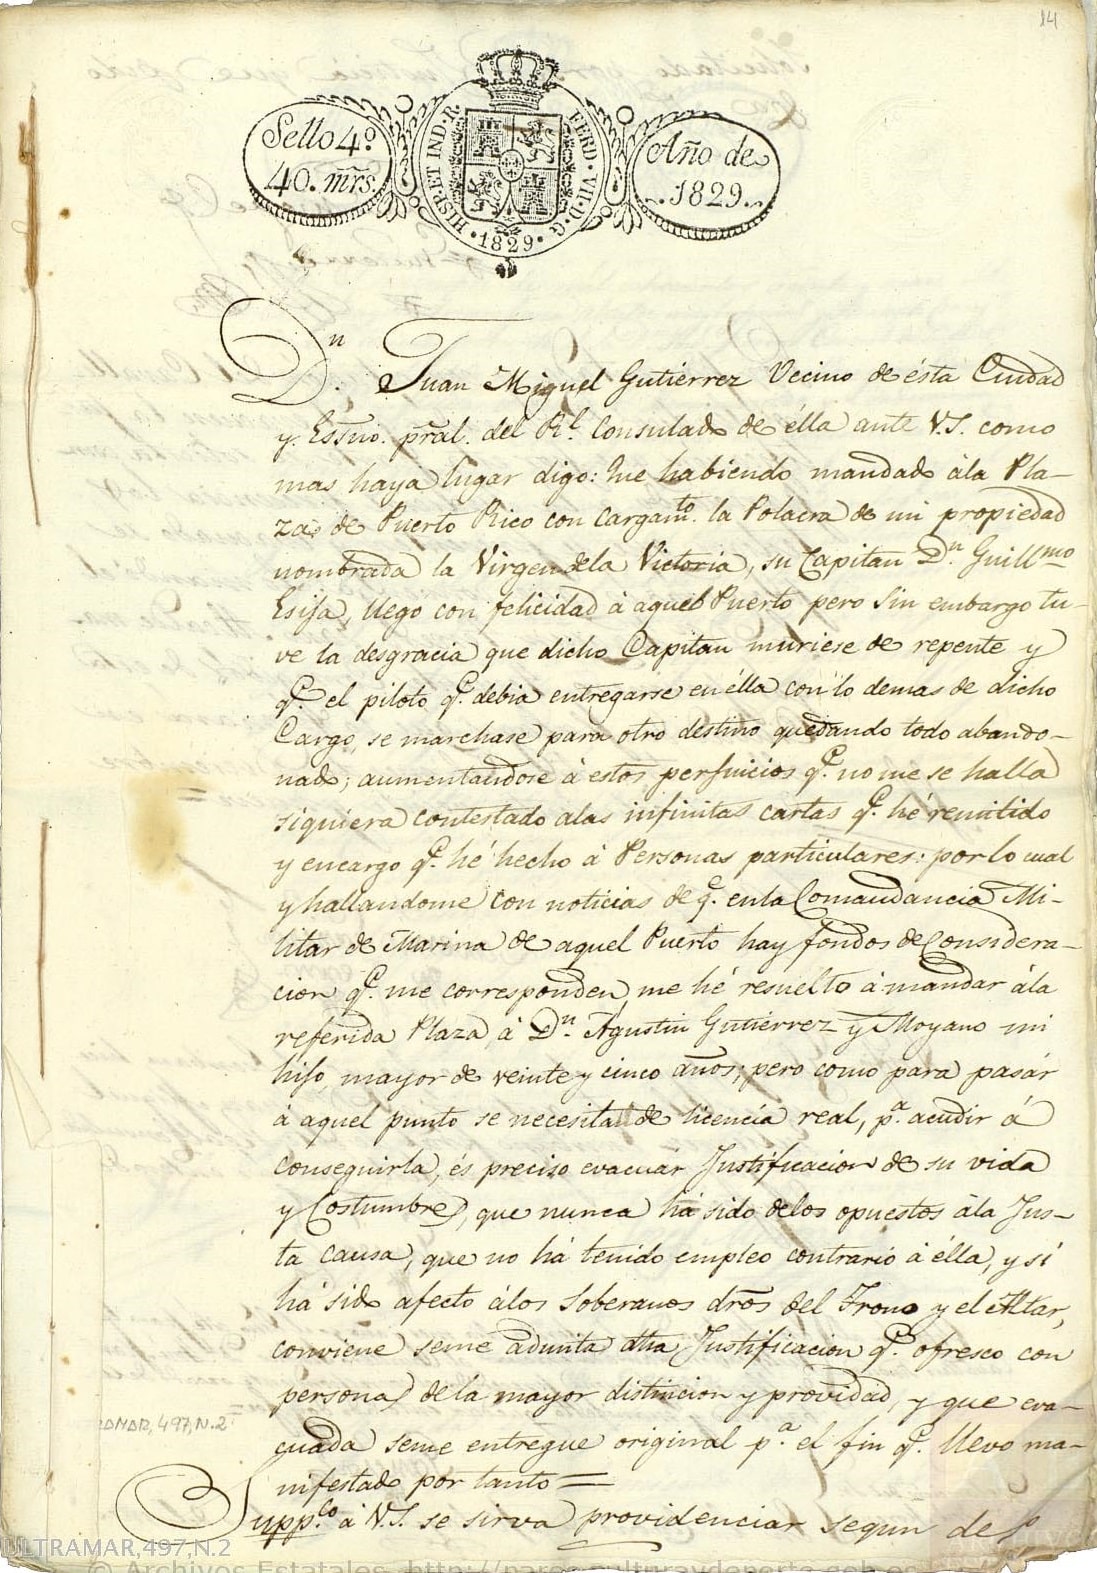 14
Sello 4º
40. mrs.
HISP. ET IND. R.
FERD. VII. D. G.
1829
Año de
1829.
Dn. Juan Miguel Gutierrez Vecino de ésta Ciudad
y Essno. pral. del Rl. Consulado de élla ante V.S. como
mas haya lugar digo: Que habiendo mandado àla Pla-
za de Puerto Rico con cargamto. la Polacra de mi propiedad
nombrada la Virgen dela Victoria, su Capitan Dn. Guillmo
Esifa, llego con felicidad à aquel Puerto pero sin embargo tu-
ve la desgracia que dicho Capitan muriese de repente y
qe. el piloto qe. debia entregarse en élla con lo demas de dicho
Cargo, se marchase para otro destino quedando todo abando-
nado; aumentandose à estos perjuicios qe. no me se halla
siquiera contestado alas infinitas cartas qe. hé remitido
y encargo qe. hé hecho à Personas particulares: por lo cual
y hallandome con noticias de qe. en la Comandancia Mi-
litar de Marina de aquel Puerto hay fondos de Considera-
cion qe. me corresponden, me hé resuelto à mandar àla
referida Plaza à Dn. Agustin Gutierrez y Moyano mi
hijo mayor de veinte y cinco años; pero como para pasár
à aquel punto se necesita de licencia real, pa. acudir á
conseguirla, és preciso evacuar Justificacion de su vida
y Costumbre, que nunca há sido delos opuestos àla Jus-
ta causa, que no há tenido empleo contrario à élla, y sí
há sido afecto àlos Soberanos dros del Trono y el Altar,
conviene seme admita dha Justificacion qe. ofresco con
persona de la mayor distincion y providad, y que eva-
cuada seme entregue original pa. el fin qe. llevo ma-
nifestado por tanto =
Suppco. à V.S. se sirva providenciar segun de
AMAR, 497, N.2
ULTRAMAR,497,N.2
© Archivos Estatales, http://pares.culturaydeporte.gob.es